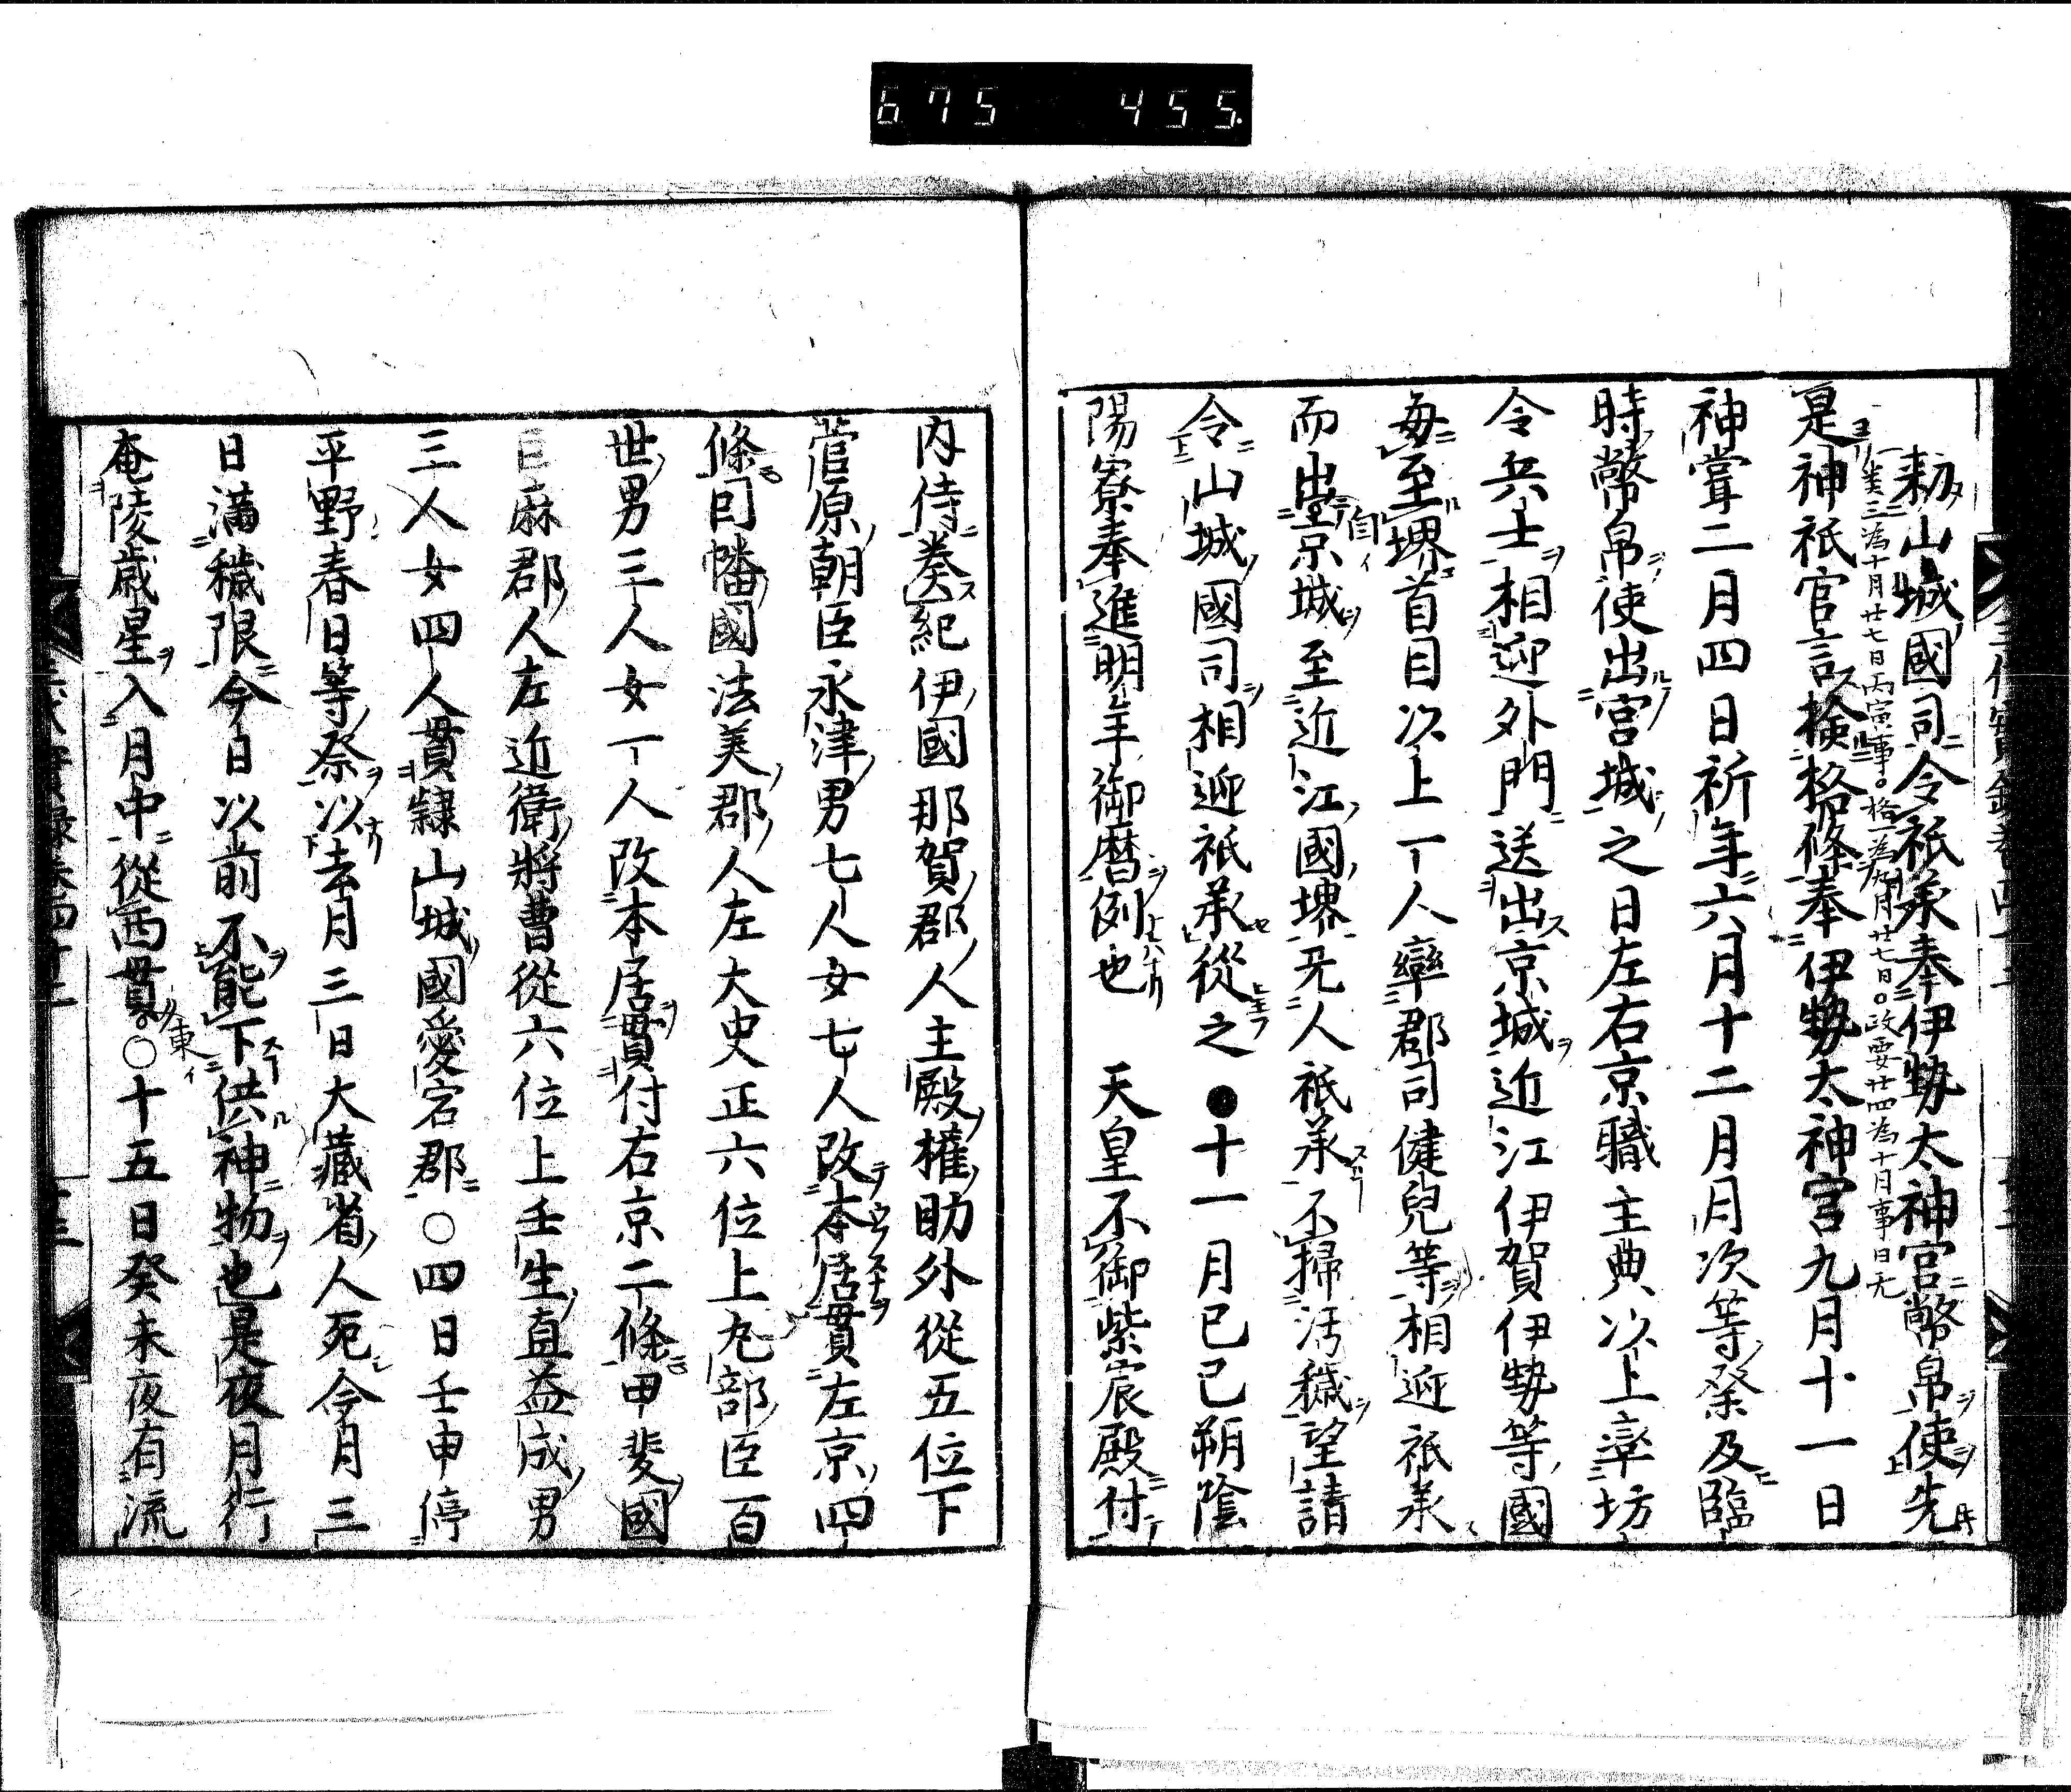 675 455
勑山城國司令祇承奉伊勢太神宮幣帛使先
類三為十月廿七日丙寅事。格一為九月廿七日。政要廿四為十月事日无
是神祇官言檢格條奉伊勢太神宮九月十一日
神甞二月四日祈年六月十二月月次等祭及臨
時幣帛使出宮城之日左右京職主典以上率坊
令兵士相迎外門送出京城近江伊賀伊勢等國
每至堺首目以上一人率郡司健兒等相迎祇承
而出京城至近江國堺无人祇承不掃汚穢望請
自イ
令山城國司相迎祇承從之●十一月已已朔陰
陽寮奉進明年御曆例也 天皇不御紫宸殿付
内侍奏紀伊國那賀郡人主殿權助外從五位下
菅原朝臣永津男七人女七人改本居貫左京四
條因幡國法美郡人左大史正六位上丸部臣百
世男三人女一人改本居貫付右京二條甲斐國
巨麻郡人左近衛將曹從六位上壬生直益成男
三人女四人貫隸山城國愛宕郡○四日壬申停
平野春日等祭以去月三日大藏省人死今月三
日滿穢限今日以前不能下供神物也是夜月行
奄陵歲星入月中從西貫。○十五日癸未夜有流
東イ